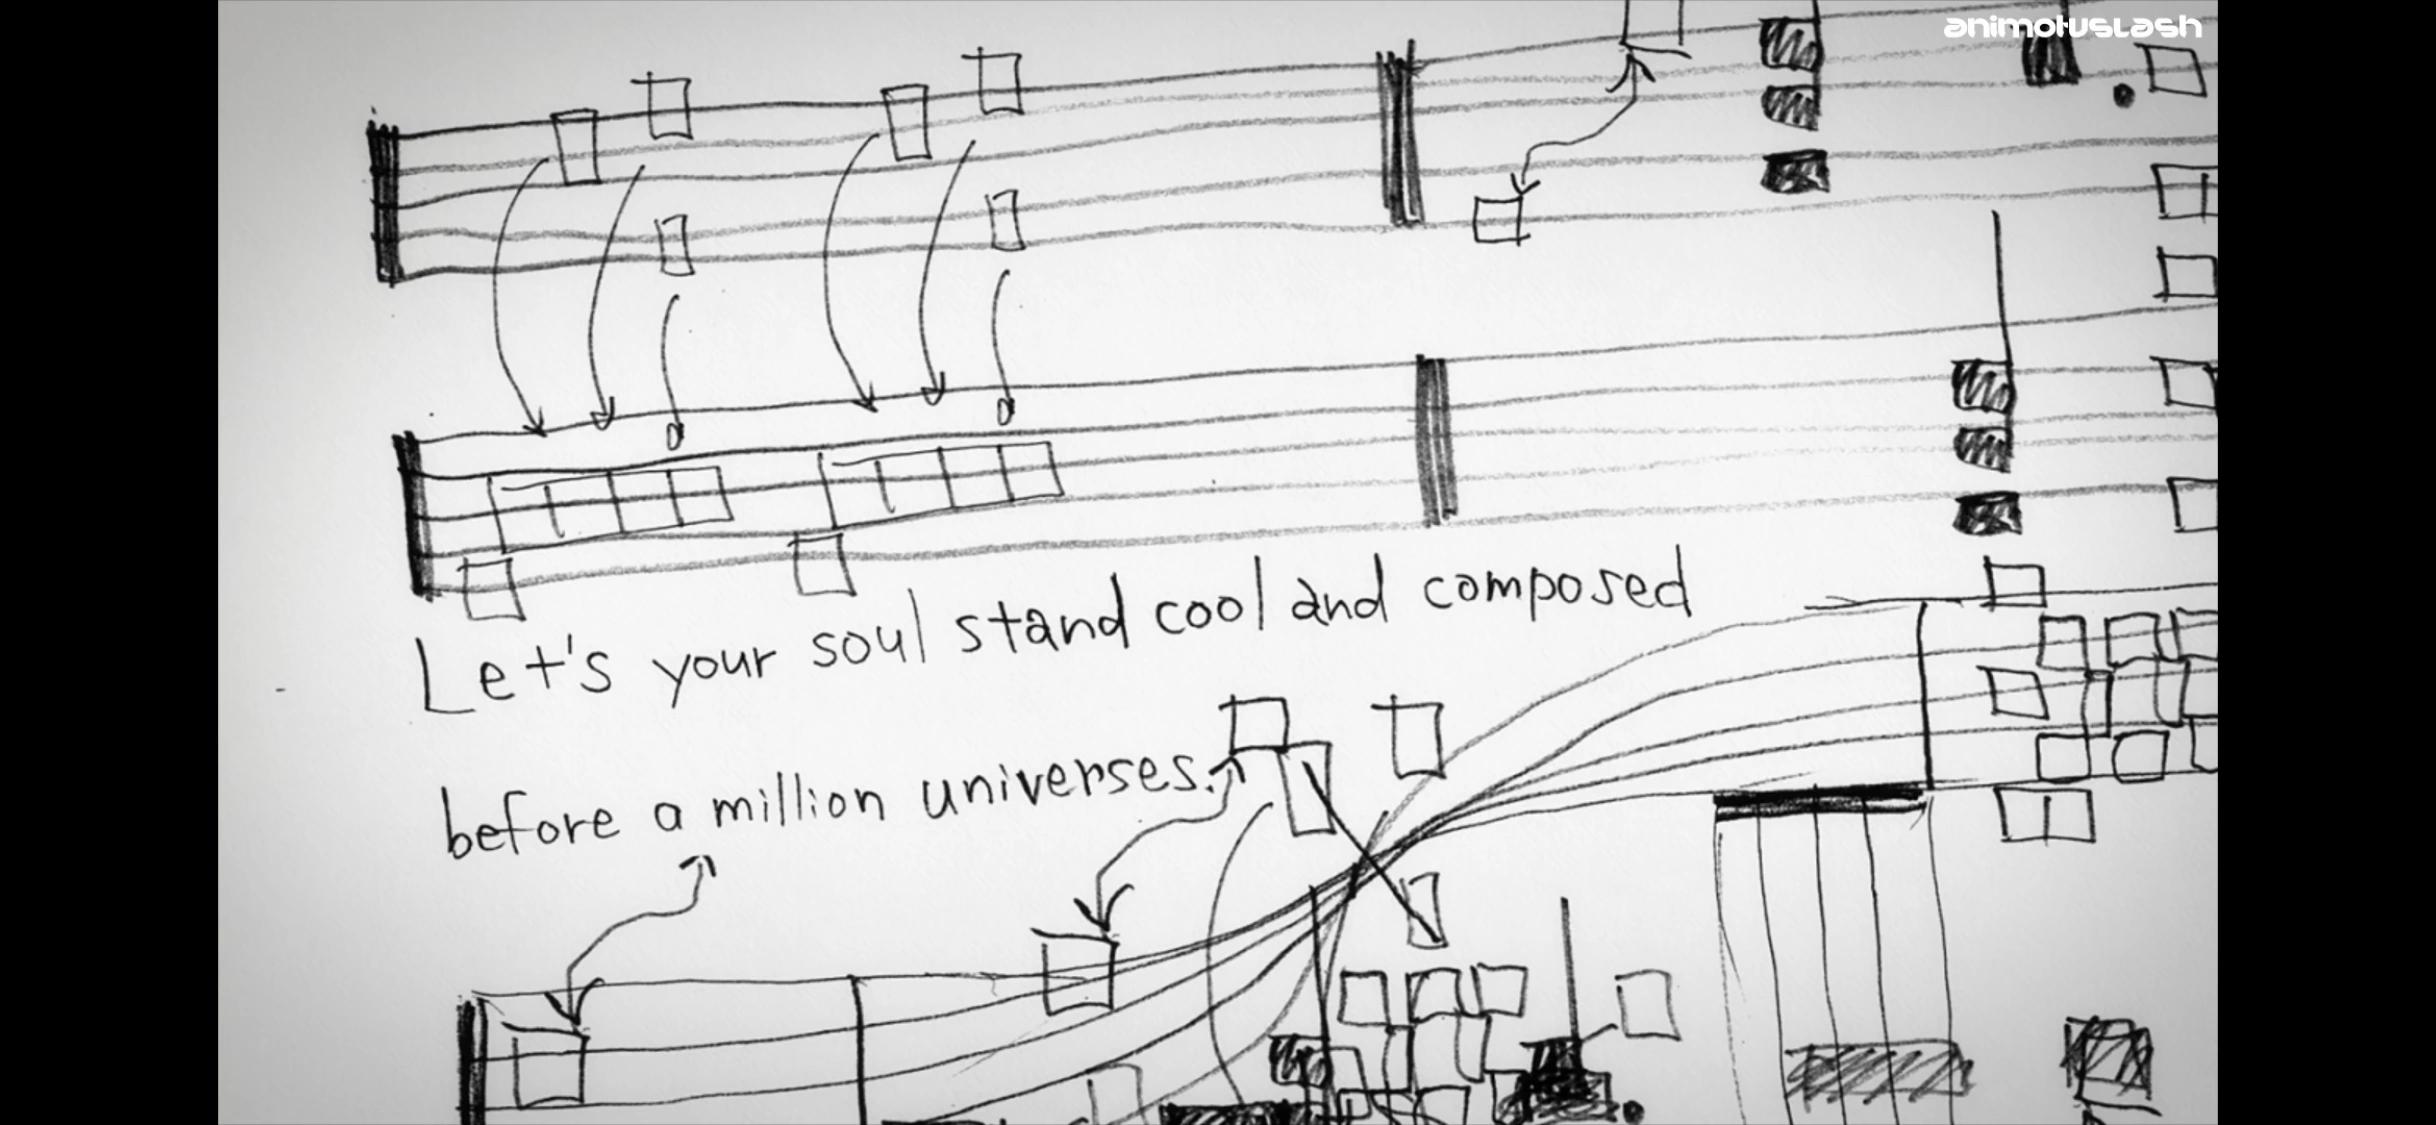 animotuslash
Let's your soul stand cool and composed
before a million universes.